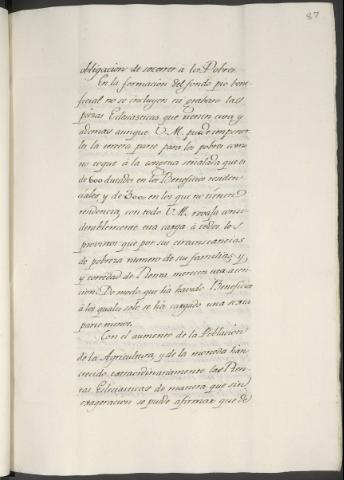 87
obligacion de socorrer á los Pobres.
En la formacion del fondo pio bene-
ficial no se incluyen ni graban las
piezas Eclesiasticas que tienen cura y
ademas aunque V. M. puede imponer
les la tercera parte para los pobres como
no toque á la congrua señalada que es
de 600 ducados en los Beneficios residen-
ciales y de 300 en los que no tienen
residencia, con todo V. M. rebaja consi-
derablemente esta carga á todos los
provistos que por sus circunstancias
de pobreza numero de su familia, y
cortedad de Renta merecen esta aten-
cion. De modo que há havido Beneficio
á los quales solo se ha cargado una sexta
parte menos.
Con el aumento de la Poblacion
de la Agricultura, y de la moneda han
crecido extraordinariamente las Ren-
tas Eclesiasticas de manera que sin
exageracion se puede afirmar que de